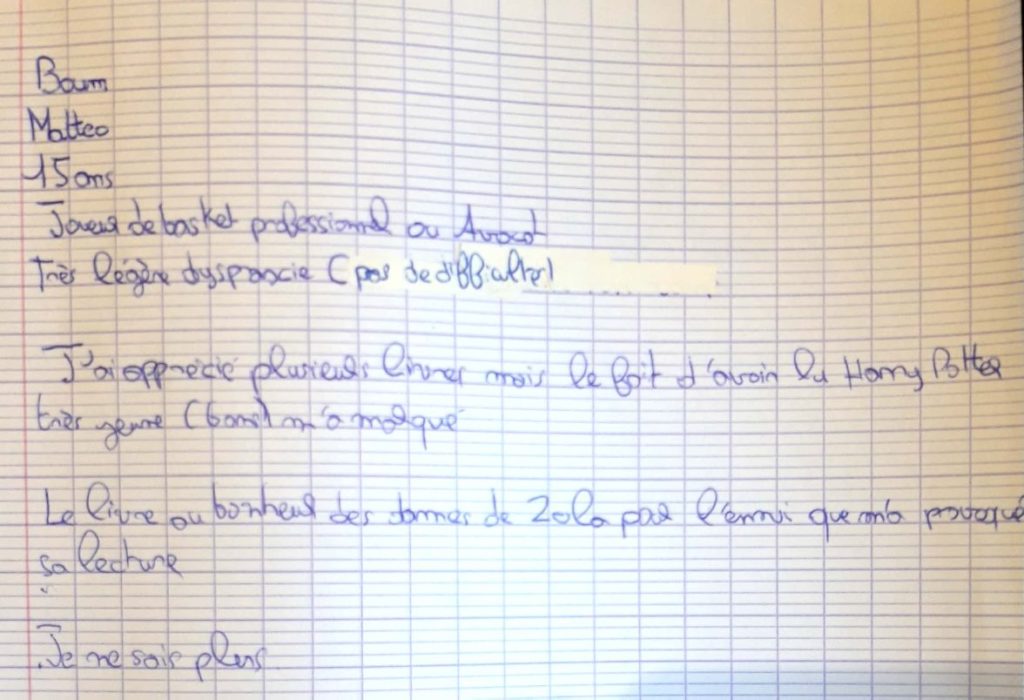 Baum
Matteo
15 ans
Joueur de basket professionnel ou Avocat
Très légère dyspraxie (pas de difficultés)
J'ai apprécié plusieurs livres mais le fait d'avoir lu Harry Potter
très jeune (6 ans) m'a marqué
Le livre au bonheur des dames de Zola par l'ennui que m'a provoqué
sa lecture
Je ne sais plus